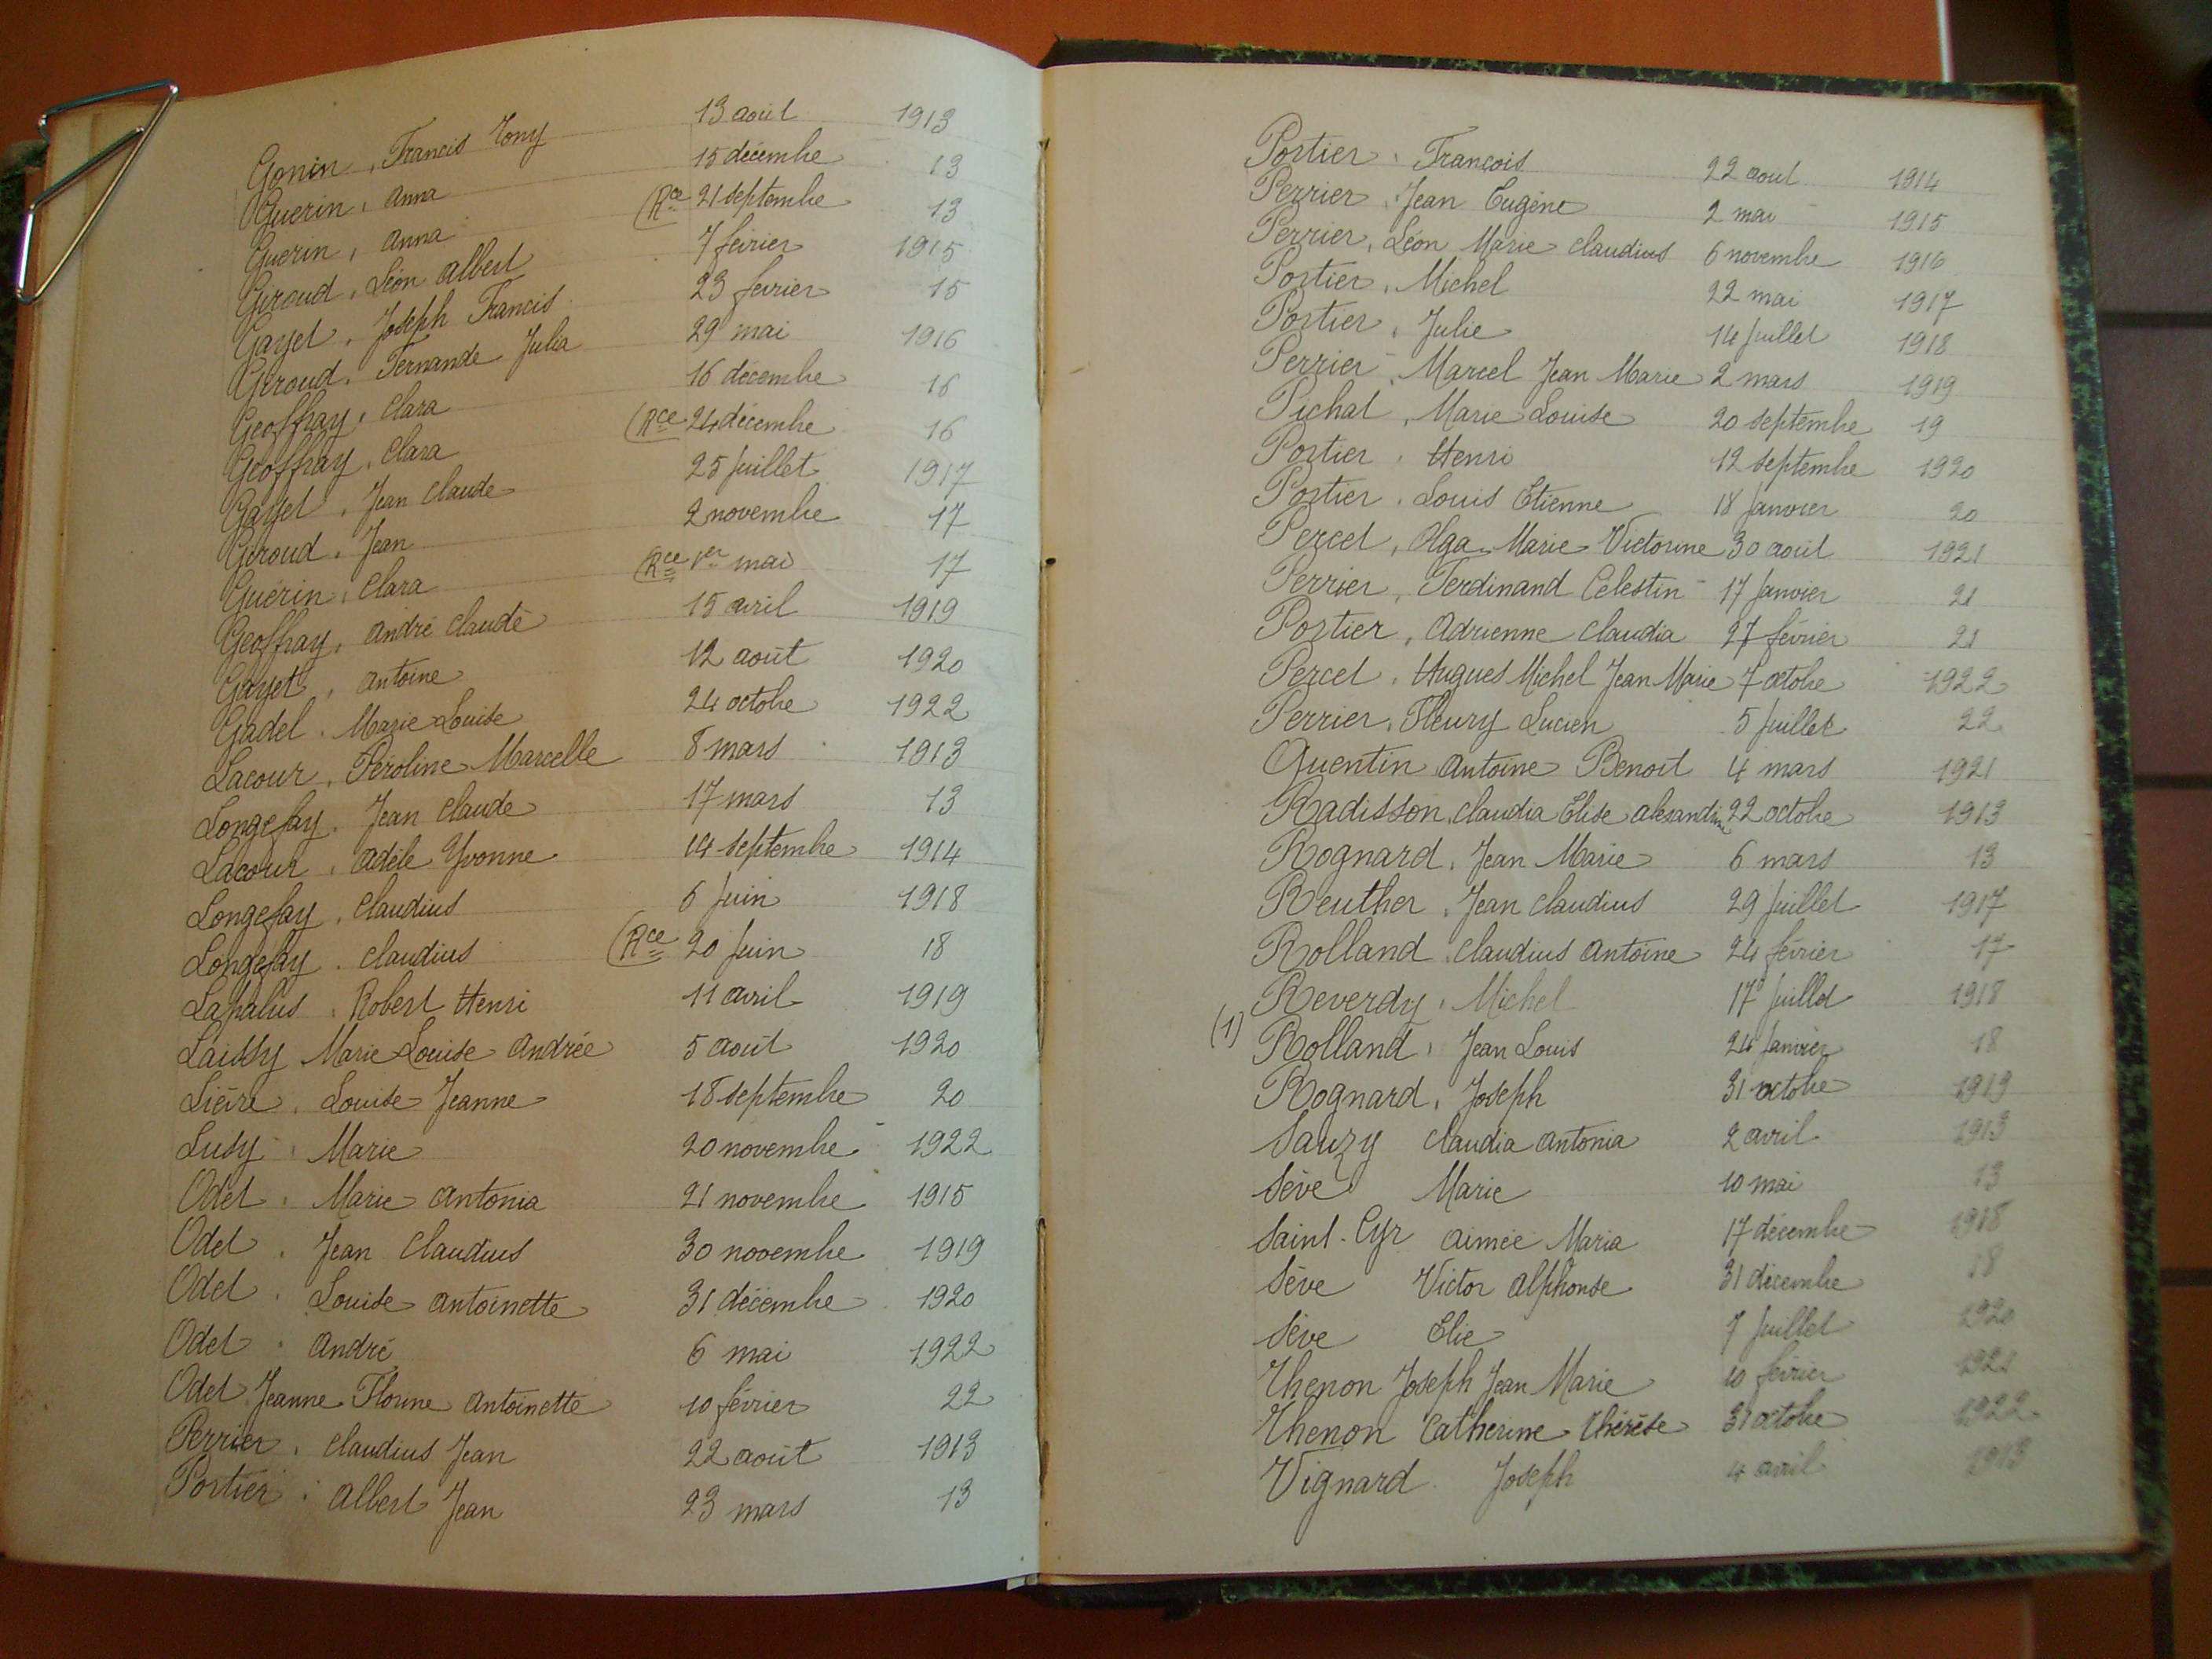 Gonin, Francis Tony 13 août 1913
Guerin, Anna 15 décembre 13
Guerin, Anna (Rce 21 septembre 13
Giroud, Léon Albert 7 février 1915
Gayet, Joseph Francis 23 février 15
Giroud, Fernande Julia 29 mai 1916
Geoffray, Clara 16 décembre 16
Geoffray, Clara (Rce 24 décembre 16
Gayet, Jean Claude 25 juillet 1917
Giroud, Jean 2 novembre 17
Guérin, Clara (Rce 1er mai 17
Geoffray, André Claude 15 avril 1919
Gayet, Antoine 12 août 1920
Gadel, Marie Louise 24 octobre 1922
Lacour, Péroline Marcelle 8 mars 1913
Longefay, Jean Claude 17 mars 13
Lacour, Adèle Yvonne 14 septembre 1914
Longefay, Claudius 6 juin 1918
Longefay, Claudius (Rce 20 juin 18
Lapalus, Robert Henri 11 avril 1919
Laissy Marie Louise Andrée 5 août 1920
Lièvre, Louise Jeanne 18 septembre 20
Lusy, Marie 20 novembre 1922
Odet, Marie Antonia 21 novembre 1915
Odet, Jean Claudius 30 novembre 1919
Odet, Louise Antoinette 31 décembre 1920
Odet, André 6 mai 1922
Odet Jeanne Florine Antoinette 10 février 22
Perrier, Claudius Jean 22 août 1913
Portier, Albert Jean 23 mars 13
Portier, François 22 aout 1914
Perrier, Jean Eugène 2 mai 1915
Perrier, Léon Marie Claudius 6 novembre 1916
Portier, Michel 22 mai 1917
Portier, Julie 14 juillet 1918
Perrier, Marcel Jean Marie 2 mars 1919
Pichat, Marie Louise 20 septembre 19
Portier, Henri 12 septembre 1920
Portier, Louis Etienne 18 janvier 20
Percet, Olga Marie Victorine 30 août 1921
Perrier, Ferdinand Celestin 17 janvier 21
Portier, Adrienne Claudia 27 février 21
Percet, Hugues Michel Jean Marie 7 octobre 1922
Perrier, Fleury Lucien 5 juillet 22
Quentin Antoine Benoit 4 mars 1921
Radisson, Claudia Elise Alexandrine 22 octobre 1913
Rognard, Jean Marie 6 mars 13
Reuther, Jean Claudius 29 juillet 1917
Rolland, Claudius Antoine 24 février 17
Reverdy, Michel 17 juillet 1918
(1) Rolland, Jean Louis 24 janvier 18
Rognard, Joseph 31 octobre 1919
Sauzy Claudia Antonia 2 avril 1913
Sève Marie 10 mai 13
Saint-Cyr Aimée Maria 17 décembre 1918
Sève Victor Alphonse 31 décembre 18
Sève Elie 7 juillet 1920
Thenon Joseph Jean Marie 10 février 1921
Thenon Catherine Thérèse 31 octobre 1922
Vignard Joseph 4 avril 1913